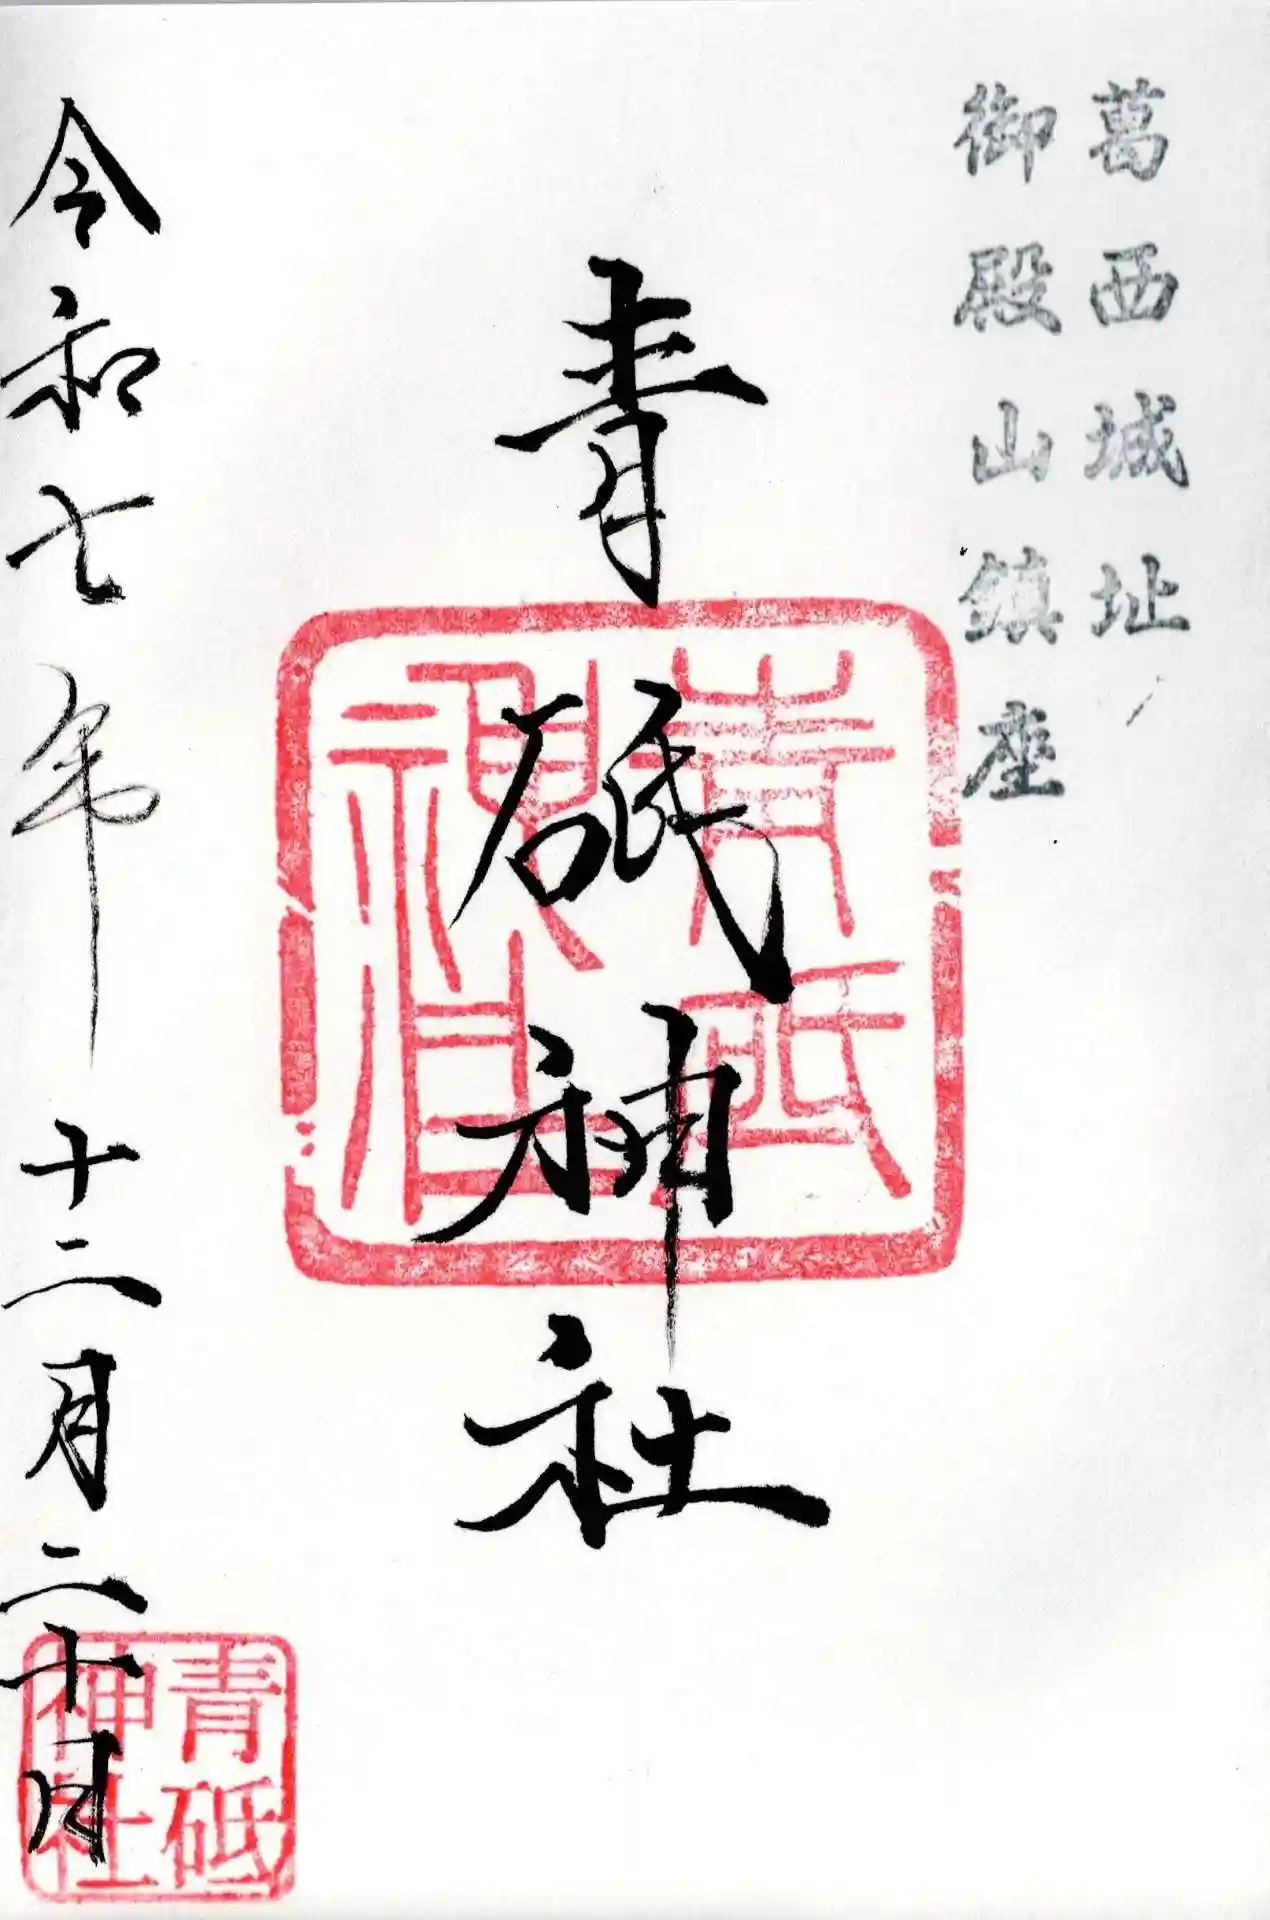 葛西城址
御殿山鎮座
青砥神社
青砥神社
令和七年十二月二十日
青砥神社